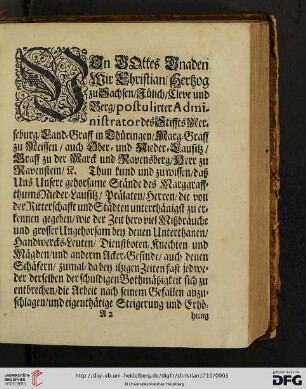 VOn GOttes Gnaden
Wir Christian/ Hertzog
zu Sachsen/ Jülich/ Cleve und
Berg/ postulirter Admi-
nistrator des Stiffts Mer-
seburg/ Land-Graff in Thüringen/ Marg-Graff
zu Meissen/ auch Ober- und Nieder-Lausitz/
Graff zu der Marck und Ravensberg/ Herr zu
Ravenstein/ ꝛc. Thun kund und zu wissen/ daß
Uns Unsere gehorsame Stände des Marggraff-
thums Nieder-Lausitz/ Prälaten/ Herren/ die von
der Ritterschafft und Städten unterthänigst zu er-
kennen gegeben/ wie der Zeit hero viel Mißbräuche
und grosser Ungehorsam bey denen Unterthanen/
Handwercks-Leuten/ Dienstboten/ Knechten und
Mägden/ und anderm Acker-Gesinde/ auch denen
Schäfern/ zumal/ da bey itzigen Zeiten fast iedwe-
der derselben der schuldigen Bothmäßigkeit sich zu
entbrechen/ die Arbeit nach seinem Gefallen anzu-
schlagen/ und eigenthätige Steigerung und Erhö-
A 2 hung
UNIVERSITÄTS-
BIBLIOTHEK
HEIDELBERG
http://digi.ub.uni-heidelberg.de/diglit/christian1710/0003
© Universitätsbibliothek Heidelberg
DFG